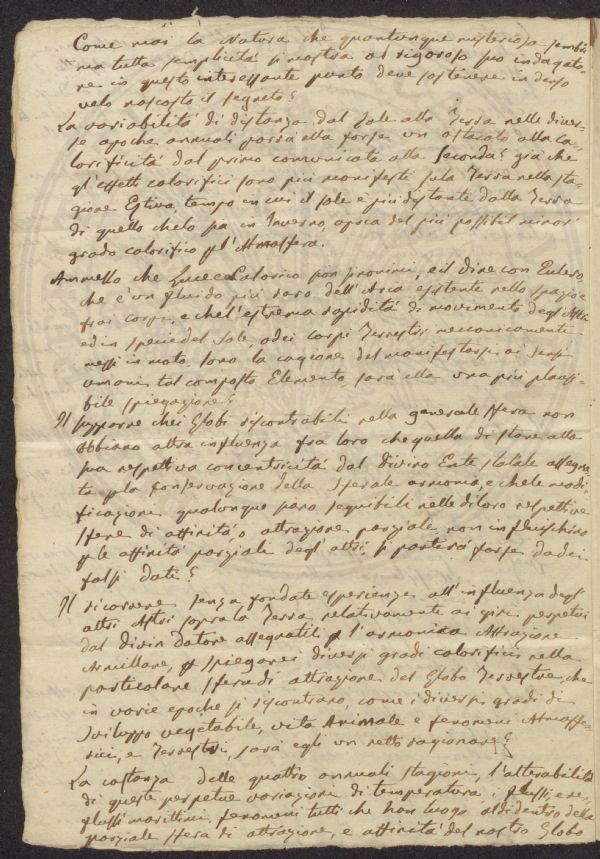 Come mai la Natura che quantunque misteriosa sembri
ma tutta semplicità si mostra al rigoroso suo indagato-
re in questo interessante punto deve sostenere in denso
velo nascosto il segreto?
La variabilità di distanza dal Sole alla Terra nelle diver-
se epoche annuali porrà ella forse un ostacolo alla ca-
lorificità dal primo comunicata alla seconda? già che
gl'effetti calorifici sono più manifesti sula Terra nella sta-
gione Estiva, tempo in cui il sole e più distante dalla Terra
di quello che lo sia in Inverno, epoca del più possibil minor
grado calorifico p l'Atmosfera.
Ammesso che Luce e Calorico son sinonimi, e il dire con Eulero
che è un fluido più raro dell'Aria esistente nello spazio
frai corpi, e che l'estrema rapidità di movimento degl'Astri
ed in specie del Sole, o dei corpi Terrestri meccanicamente
messi in moto sono la cagione del manifestarsi ai sensi
umani tal composto Elemento, sarà ella una più plausi-
bile spiegazione?
Il supporre chei Globi riscontrabili nella generale sfera non
abbiano altra influenza fra loro che quella di stare alla
sua respettiva concentricità dal divino Ente statale assegna-
ta p la Conservazione della sferale armonia, e che le modi-
ficazioni qualunque sieno seguibili nelle di loro respettive
sfere di affinità, o attrazione parziale non influischino
p le affinità parziali degl'altri, si partirà forse da dei
falsi dati?
Il ricorrere senza fondate esperienze all'influenza degl'
altri Astri sopra la Terra relativamente ai giri perpetui
dal divin datore assegnatili p l'armonica Attrazione
Armillare, p spiegare i diversi gradi calorifici nella
particolare sfera di attrazione del Globo Terrestre, che
in varie epoche si riscontrano, come i diversi gradi di
sviluppo vegetabile, vita Animale e fenomeni Atmosfe-
rici, e Terrestri, sarà egli un retto ragionare?
La costanza delle quattro annuali stagioni, l'alterabilità
di queste perpetue variazioni di temperatura, i flussi, e re-
flussi marittimi, fenomeni tutti che han luogo al di dentro della
parziale sfera di attrazione, e affinità del nostro Globo